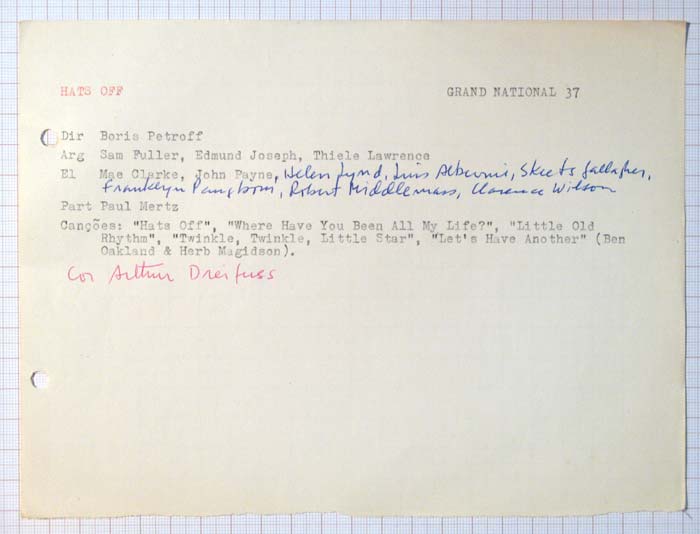 HATS OFF GRAND NATIONAL 37
Dir Boris Petroff
Arg Sam Fuller, Edmund Joseph, Thiele Lawrence
El Mae Clarke, John Payne, Helen Lynd, Luis Alberni, Skeets Gallagher,
Franklyn Pangborn, Robert Middlemass, Clarence Wilson
Part Paul Mertz
Canções: "Hats Off", "Where Have You Been All My Life?", "Little Old
Rhythm", "Twinkle, Twinkle, Little Star", "Let's Have Another" (Ben
Oakland & Herb Magidson).
Cor Arthur Dreifuss